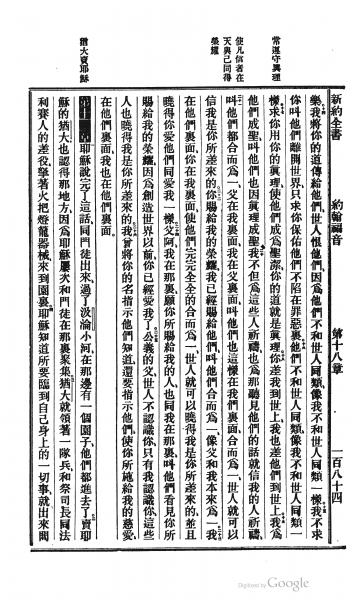 新約全書
約翰福音
第十八章
一百八十四
常遵守真理
使凡信者在
天與己同得
榮耀
猶大賣耶穌
樂我將你的道傳給他們世人恨他們因爲他們不和世人同類像我不和世人同類一樣我不求
你叫他們離開世界只求你保佑他們不陷在罪惡裏他們不和世人同類像我不和世人同類一
樣求你用你的真理使他們成爲聖你的道就是真理你差我到世上我也差他們到世上我爲
他們成聖叫他們也因真理成聖我不但爲這些人祈禱也爲那聽見他們的話就信我的人祈禱
叫他們都合而爲一父在我裏面我在父裏面叫他們也這樣在我們裏面合而爲一世人就可以
信我是你所差來的你賜給我的榮耀我已經賜給他們叫他們合而爲一像父和我本來爲一我
在他們裏面你在我裏面使他們完完全全的合而爲一世人就可以曉得我是你所差來的並且
曉得你愛他們同愛我一樣父阿我在那裏願你所賜給我的人也同我在那裏叫他們看見你所
賜給我的榮耀因爲創造世界以前你已經愛我了公義的父世人不認識你只有我認識你這些
人也曉得我是你所差來的我曾將你的名指示他們知道還要指示他們使你所施給我的慈愛
在他們裏面我也在他們裏面
第十八章 耶穌說完了這話同門徒出來過了汲淪小河在那邊有一個園子他們都進去了賣耶
穌的猶大也認得那地方因爲耶穌屢次和門徒在那裏聚集猶大就領著一隊兵和祭司長同法
利賽人的差役拏著火把燈籠器械來到園裏耶穌知道所要臨到自己身上的一切事就出來問
Digitized by Google